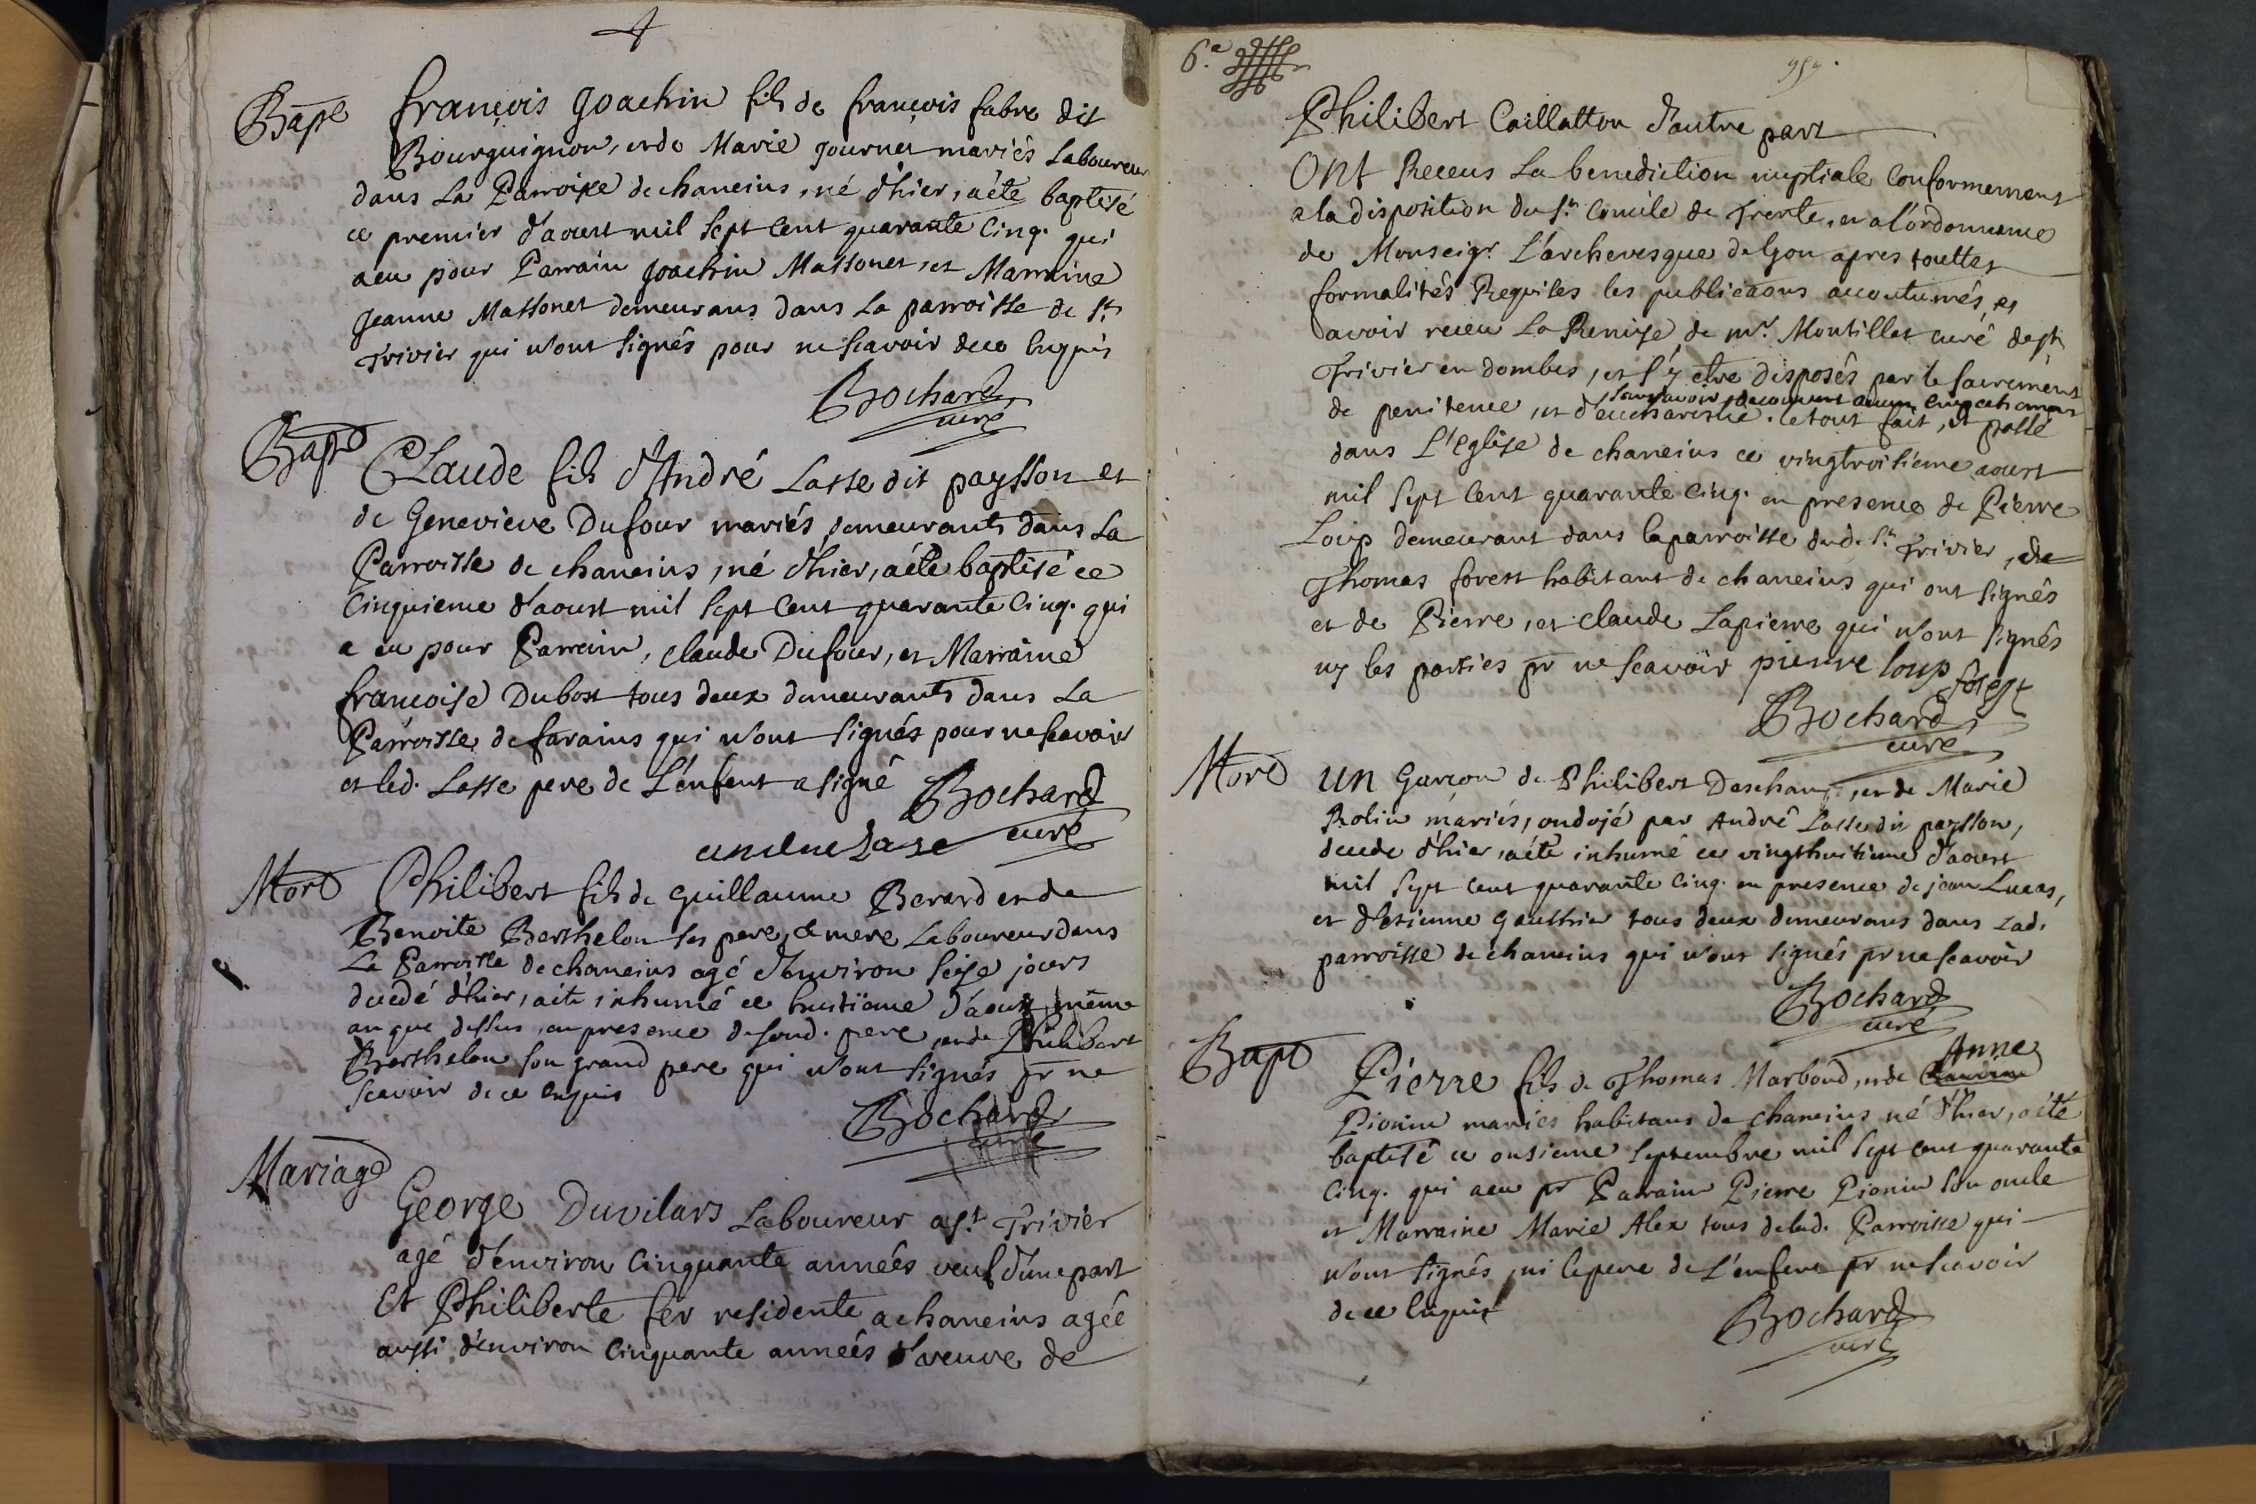 Bapt
françois Joachin fils de françois fabre dit
Bourguignon, et de Marie Journet mariés Laboureur
dans La Parroisse de chaneins, né d'hier, a été baptisé
ce premier d'aoust mil sept cent quarante cinq. qui
a eu pour Parrain Joachin Massonet, et Marraine
Jeanne Massonet demeurans dans la parroisse de St.
Trivier qui n'ont signés pour ne scavoir de ce enquis
Bochard
curé
Bapt
CLaude fils d'André Lasse dit paysson et
de Genevieve Dufour mariés demeurants dans La
Parroisse de chaneins, né d'hier, a été baptisé ce
Cinquieme d'aoust mil sept cent quarante cinq. qui
a eu pour Parrain, claude Dufour, et Marraine
francoise Dubost tous deux demeurants dans La
Parroisse de farains qui n'ont signés pour ne scavoir
et led. Lasse pere de L'enfent a signé
Bochard
curé
andre Lase
Mort
Philibert fils de guillaume Berard et de
Benoite Berthelon ses pere, et mere Laboureur dans
La Parroisse de chaneins agé d'environ seize jours
decedé d'hier, a été inhumé ce huitiéme d'aoust même
an que dessus, en presence de sond. pere, et de Philibert
Berthelon son grand pere qui n'ont signés pr ne
scavoir de ce enquis
Bochard
curé
Mariage
George Duvilars Laboureur a St. Trivier
agé d'environ Cinquante années veuf d'une part
Et Philiberte fer residente a chaneins agée
aussi d'environ Cinquante années veuve de
6.e
959.
Philibert Caillatton d'autre part
Ont Receus La benediction nuptiale Conformement
a la disposition du St. Concile de Trente, et a l'ordonnance
de Monseigr. L'archevesque de Lyon apres touttes
formalités Requises les publicaons accoutumés, et
avoir receu La Remise de mr. Montillet curé de St.
Trivier en dombes, et s'y etre disposés par le sacrement
sans avoir decouvert aucun empechement
de penitence, et d'eucharistie. le tout fait, et passé
dans L'eglise de chaneins ce vingtroisieme aoust
mil sept cent quarante cinq. en presence de Pierre
Loup demeurant dans la parroisse dud. St. Trivier, de
Thomas forest habitant de chaneins qui ont signés
et de Pierre, et claude Lapierre qui n'ont signés
ny les parties pr ne scavoir pierre loup
forest
Bochard
curé
Mort
Un Garcon de Philibert Deschamp, et de Marie
Rolin mariés, ondojé par André Lasse dit paysson,
decede d'hier, a été inhumé ce vingthuitieme d'aoust
mil sept cent quarante cinq. en presence de jean Lucas,
et d'Etienne Gauthier tous deux demeurans dans Lad.
parroisse de chaneins qui n'ont signés pr ne scavoir
Bochard
curé
Bapt
Anne
Pierre fils de Thomas Marboud, et de
Pionin mariés habitans de chaneins né d'hier, a été
baptisé ce onsieme septembre mil sept cent quarante
cinq. qui a eu pr Parrain Pierre Pionin son oncle
et Marraine Marie Alex tous de lad. Parroisse qui
n'ont signés, ni le pere de L'enfent pr ne scavoir
de ce enquis
Bochard
curé